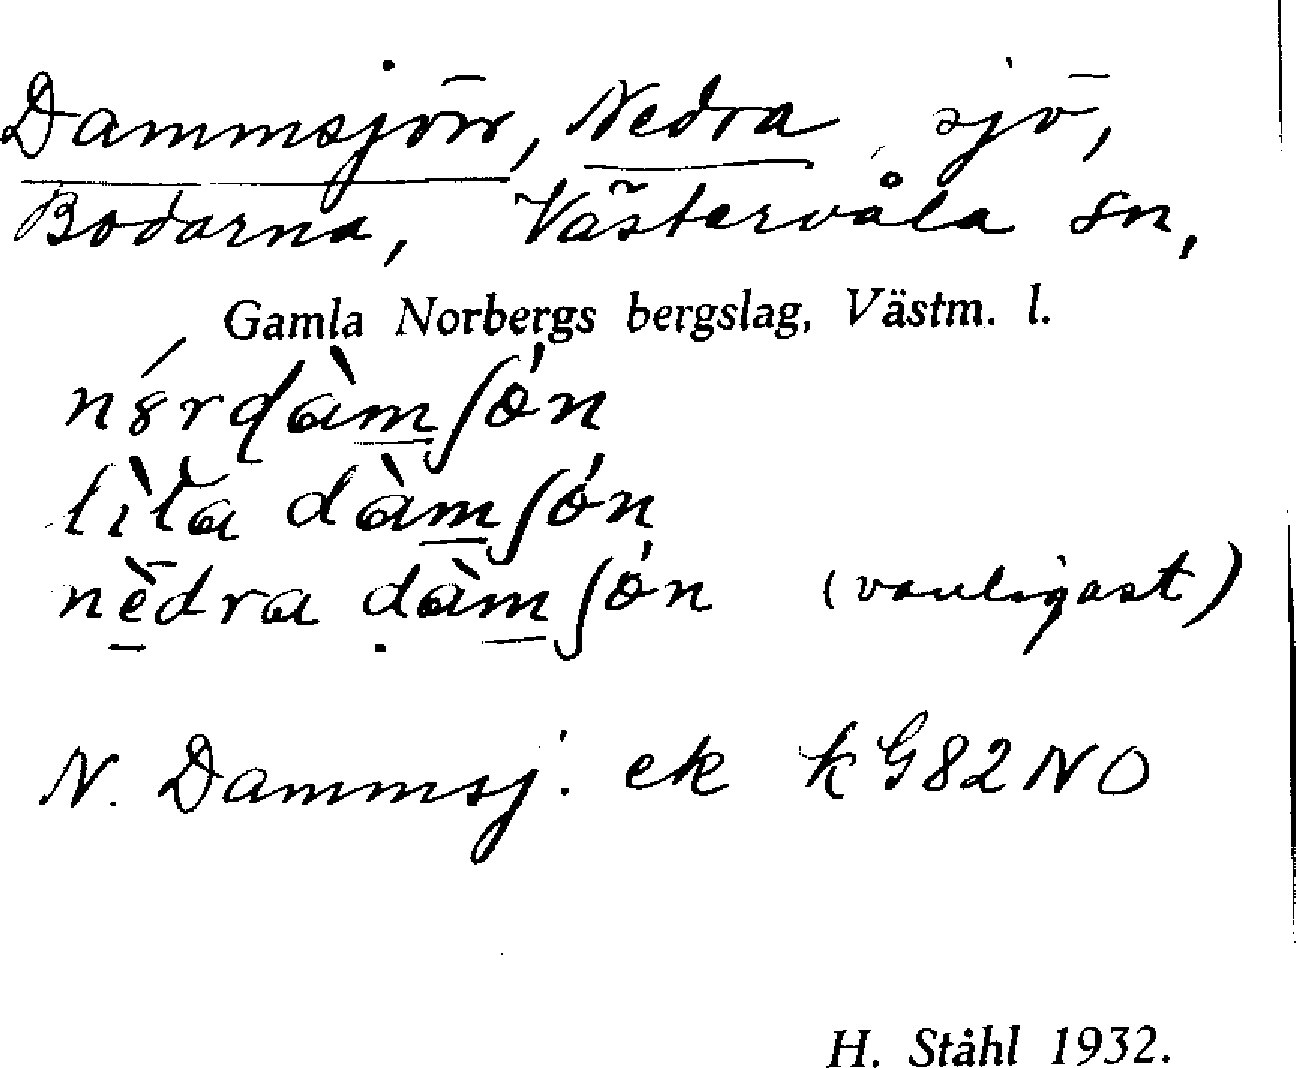 Dammsjön, Nedra sjö,
Bodarna, Västervåla sn,
Gamla Norbergs bergslag, Västm. l.
nó̤rdàmʃón
lìta dàmʃón
nèdra dàmʃón (vanligast)
N. Dammsj. ek k G82NO
H. Ståhl 1932.